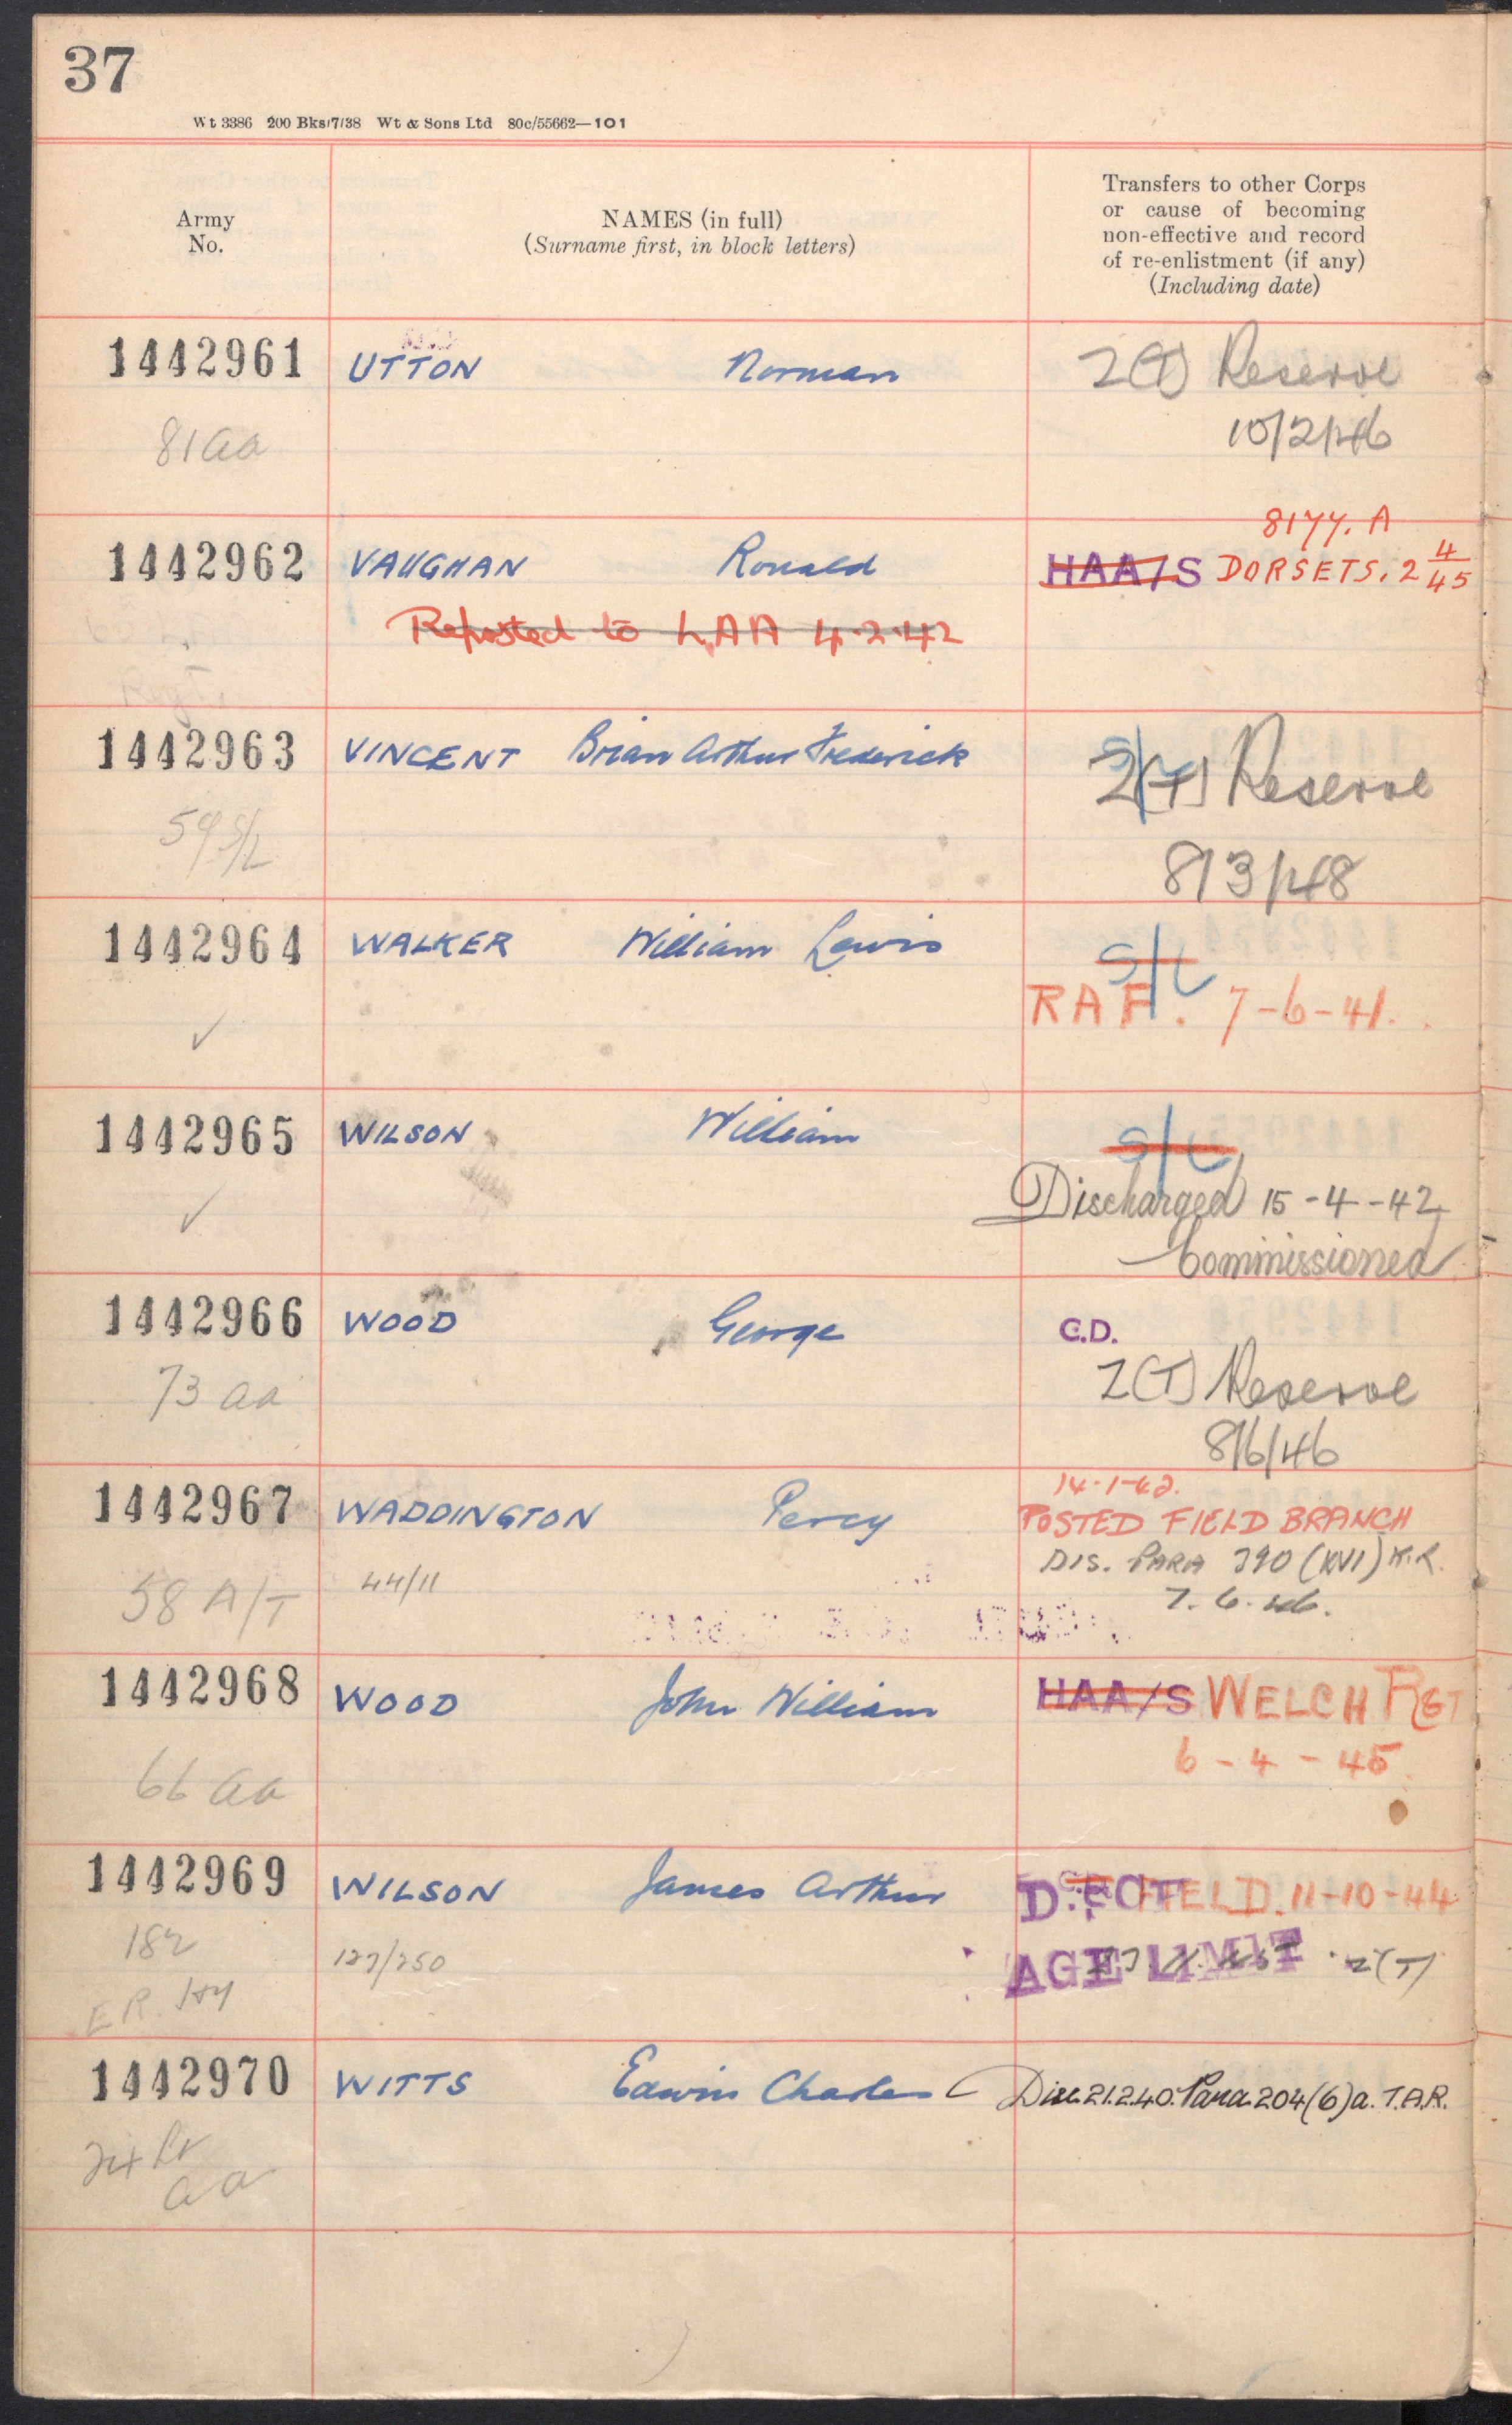 37
Wt 3386 200 Bks/7/38 Wt & Sons Ltd 80c/55662—101
Army
No.
NAMES (in full)
(Surname first, in block letters)
Transfers to other Corps
or cause of becoming
non-effective and record
of re-enlistment (if any)
(Including date)
1442961 UTTON Norman Z(T) Reserve
81aa 10/2/46
8177. A
1442962 VAUGHAN Ronald HAA/S DORSETS. 2 4/45
Reposted to LAA 4.2.42
Regt.
1442963 VINCENT Brian Arthur Frederick Z(T) Reserve
59 S/L 8/3/48
1442964 WALKER William Lewis S/L
✓ RAF. 7-6-41.
1442965 WILSON William S/L
✓ Discharged 15-4-42
Commissioned
1442966 WOOD George C.D.
73 aa Z(T) Reserve
8/6/46
14-1-42.
1442967 WADDINGTON Percy POSTED FIELD BRANCH
58 A/T 44/11 DIS. PARA 390 (XVI) K.R.
7.6.46.
1442968 WOOD John William HAA/S WELCH RGT
66 aa 6-4-45
1442969 WILSON James Arthur FIELD. 11-10-44
182 127/250 AGE LIMIT Z(T)
1442970 WITTS Edwin Charles Disc. 21.2.40. Para. 204(6)a. T.A.R.
aa